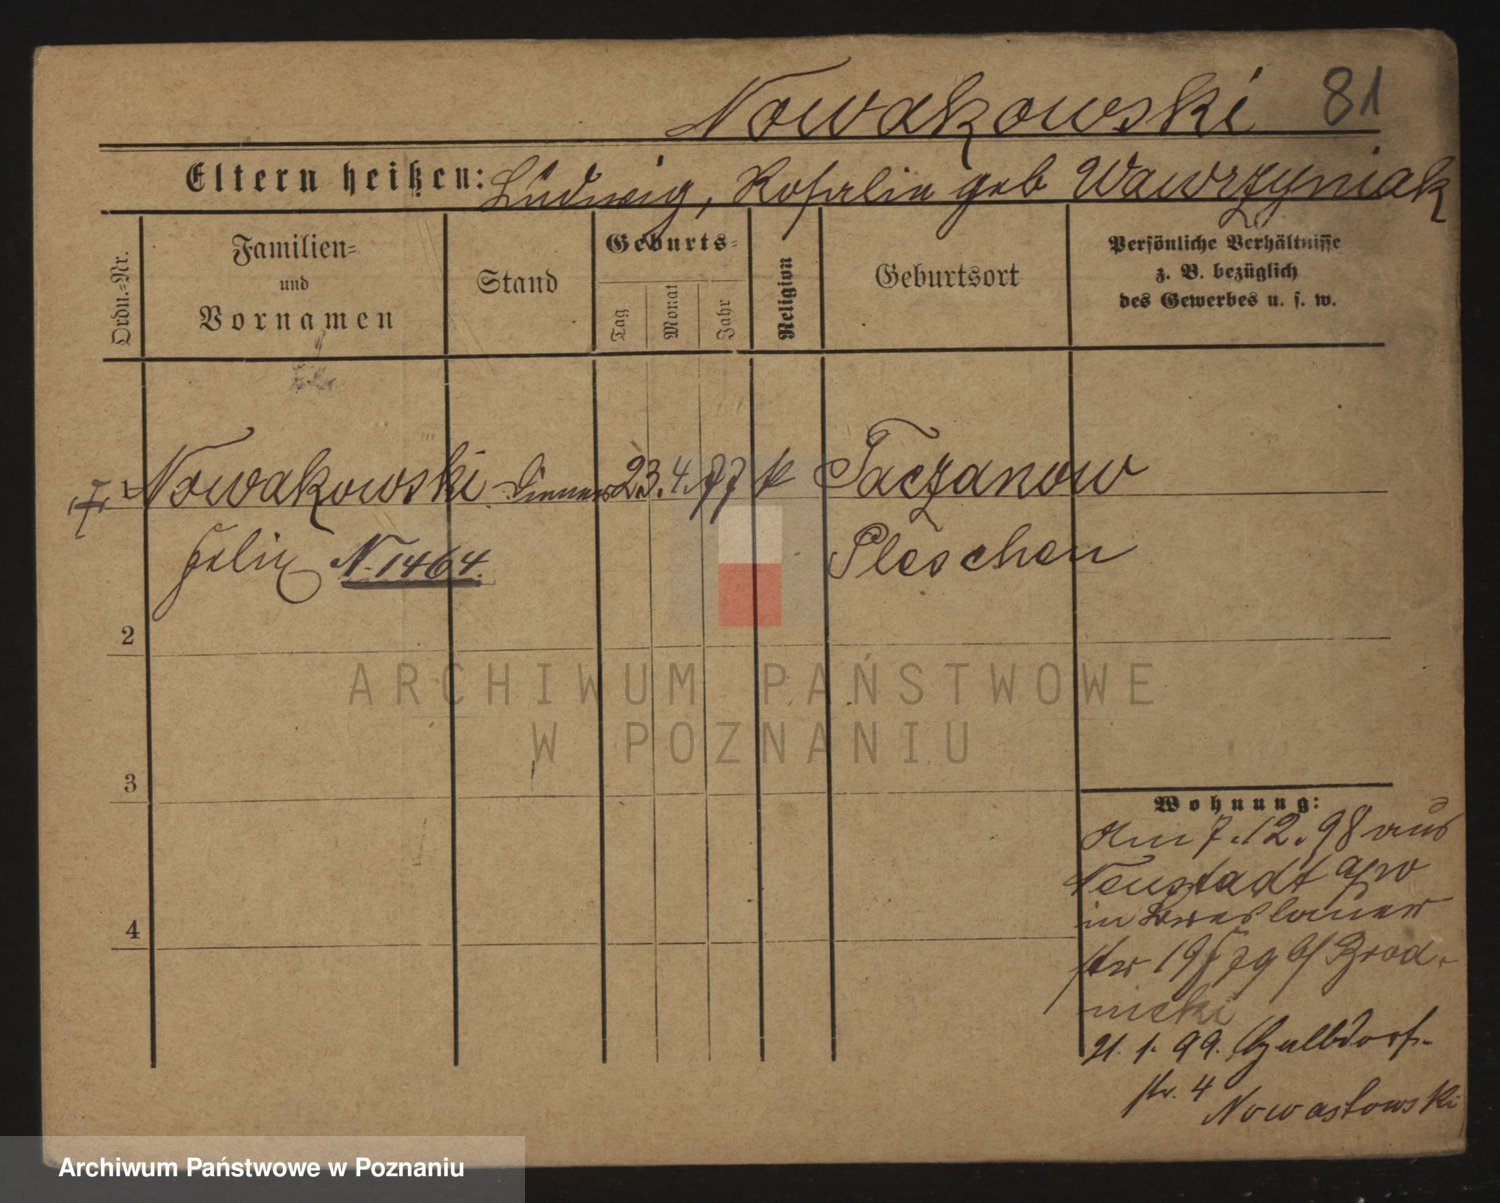 Nowakowski 81
Eltern heißen: Ludwig, Rosalie geb Wawrzyniak
Ordn.-Nr.
Familien-
und
Vornamen
Stand
Geburts-
Tag
Monat
Jahr
Religion
Geburtsort
Persönliche Verhältnisse
z. B. bezüglich
des Gewerbes u. s. w.
1 Nowakowski Diener 23. 4. 77 k Taczanow
Felix N. 1464. Pleschen
2
3
4
Wohnung:
Am 7.12.98 aus
Neustadt a/w
in Breslauer
str 19 b/ Brod-
nicki
21. 1. 99.
str. 4
ARCHIWUM PAŃSTWOWE
W POZNANIU
Archiwum Państwowe w Poznaniu